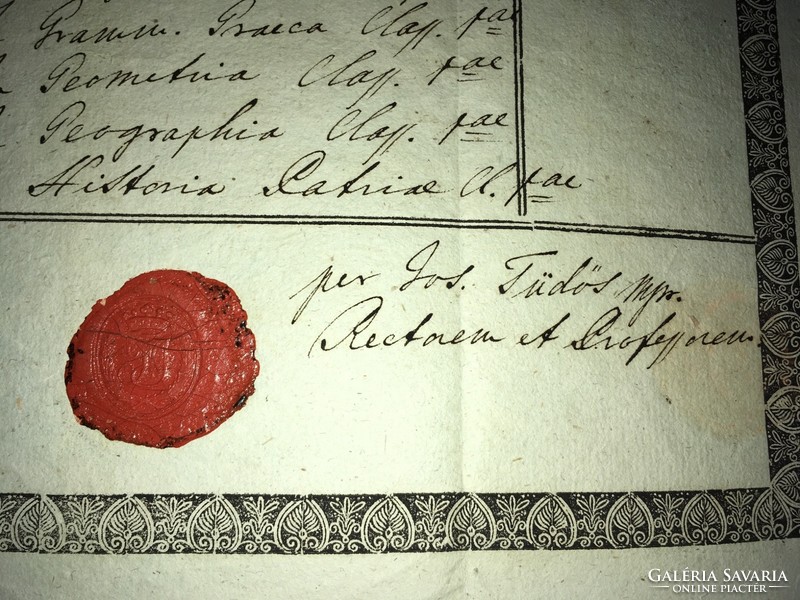 Gramm. Graeca Claſs. 1ae
Geometria Claſs. 1ae
Geographia Claſs. 1ae
Historia Patriae Cl. 1ae
per Jos. Tüdős mpr.
Rectorem et Professorem.
GALÉRIA SAVARIA
ONLINE PIACTÉR